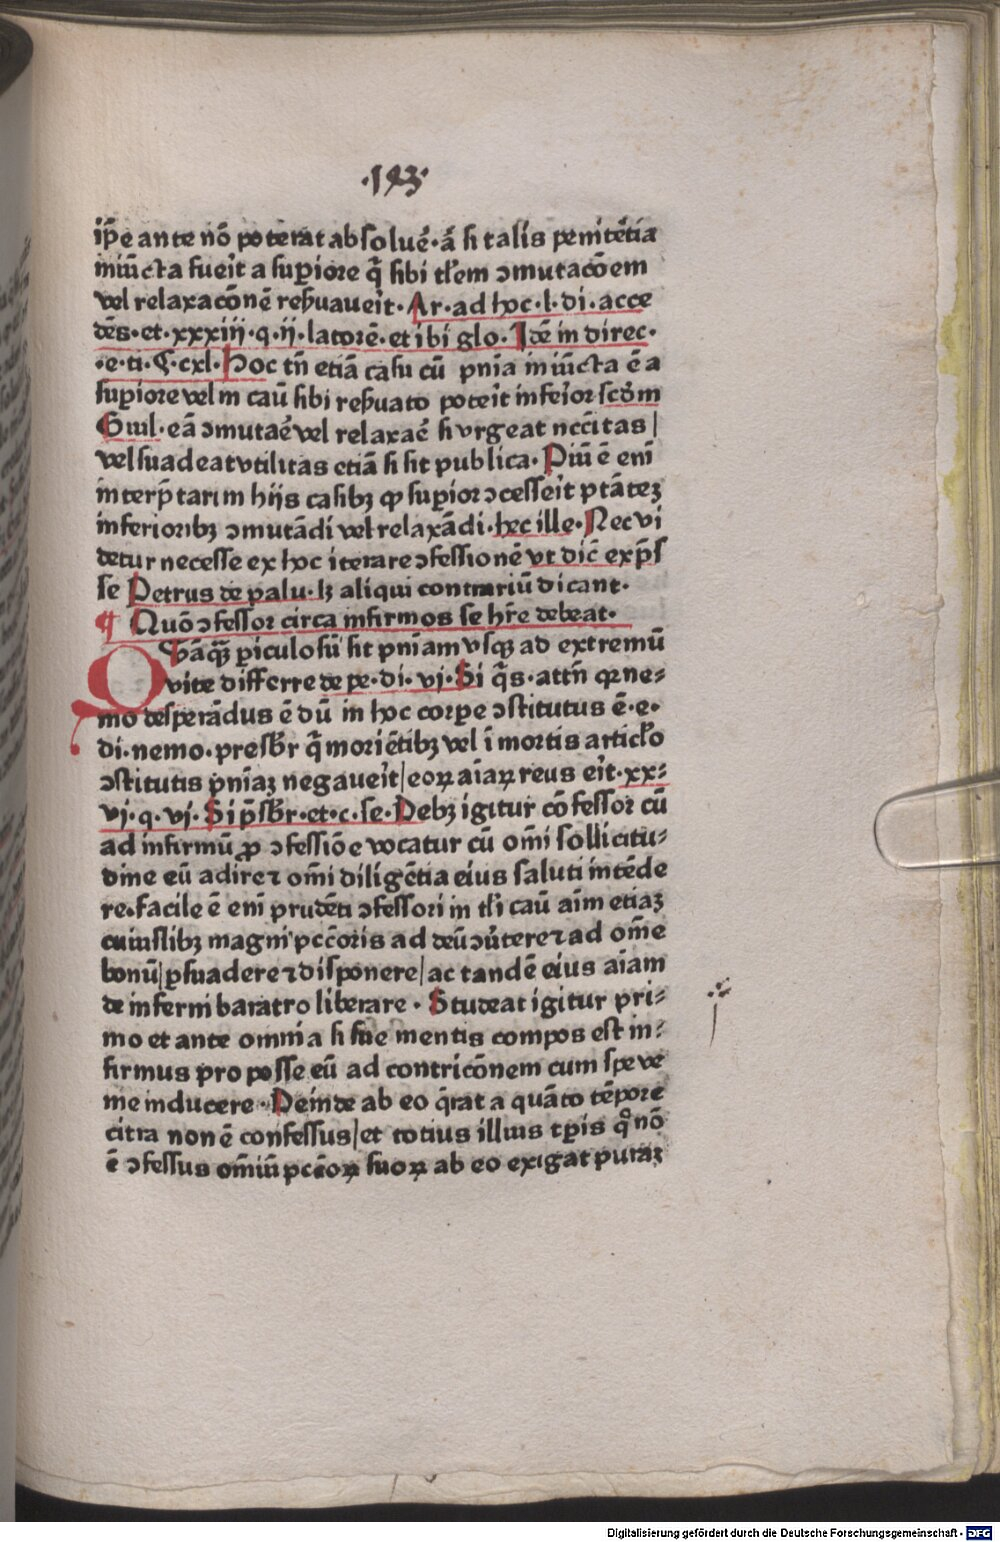 .193.
ip̄e ante nō poterat absoluē. ā si talis penitētia
iniūcta fuerit a supiore q̄ sibi tl̄em ɔmutacōem
vel relaxacōnē reſuauerit. Ar. ad hoc. l. di. acce
dēs. et. xxxiij. q. ij. latorē. et ibi glo. Idē in direc.
.e. ti. ¶. cxl. Hoc tn̄ etiā casu cū pn̄ia iniūcta ē a
supiore vel in caū sibi reſuato poterit inferior scd̄m
Guil. eā ɔmutaē vel relaxaē si vrgeat nccītas |
vel suadeat vtilitas etiā si sit publica. Piū ē enī
interp̄tari in hijs casibꝫ ꝙ supior ɔcesserit ptātēꝫ
inferioribꝫ ɔmutādi vel relaxādi. hec ille. Nec vi
detur necesse ex hoc iterare ɔfessionē vt dic̄ exp̄s
se Petrus de palu. lꝫ aliqui contrariū dicant.
¶ Quō ɔfessor circa infirmos se hr̄e debeat.
QVāqꝫ piculosū sit pn̄iam vsqꝫ ad extremū
vite differre de pe. di. vj. Si q̄s. attn̄ qꝛ ne⸗
mo desperādus ē dū in hoc corpe ɔstitutus ē. e.
di. nemo. presbr̄ q̄ moriētibꝫ vel ī mortis articl̄o
ɔstitutis pn̄iaꝫ negauerit | eoꝝ aīaꝝ reus erit. xx⸗
vj. q. vj. Si p̄sbr̄. et. c. se. Debꝫ igitur cōfessor cū
ad infirmū ꝓ ɔfessiōe vocatur cū om̄i sollicitu⸗
dine eū adire ⁊ om̄i diligētia eius saluti intēde
re. facile ē enī prudēti ɔfessori in tl̄i caū aīm etiaꝫ
cuiuslibꝫ magni pcc̄oris ad deū ɔūtere ⁊ ad om̄e
bonū | ꝑsuadere ⁊ disponere | ac tandē eius aīam
de inferni baratro liberare. Studeat igitur pri⸗
mo et ante omnia si sue mentis compos est in⸗
firmus pro posse eū ad contricōnem cum spe ve
nie inducere. Deinde ab eo q̄rat a quāto tēpore
citra non ē confessus | et totius illius tꝑis qͦ nō
ē ɔfessus om̄iū pcc̄oꝝ suoꝝ ab eo exigat puraꝫ
Digitalisierung gefördert durch die Deutsche Forschungsgemeinschaft - DFG